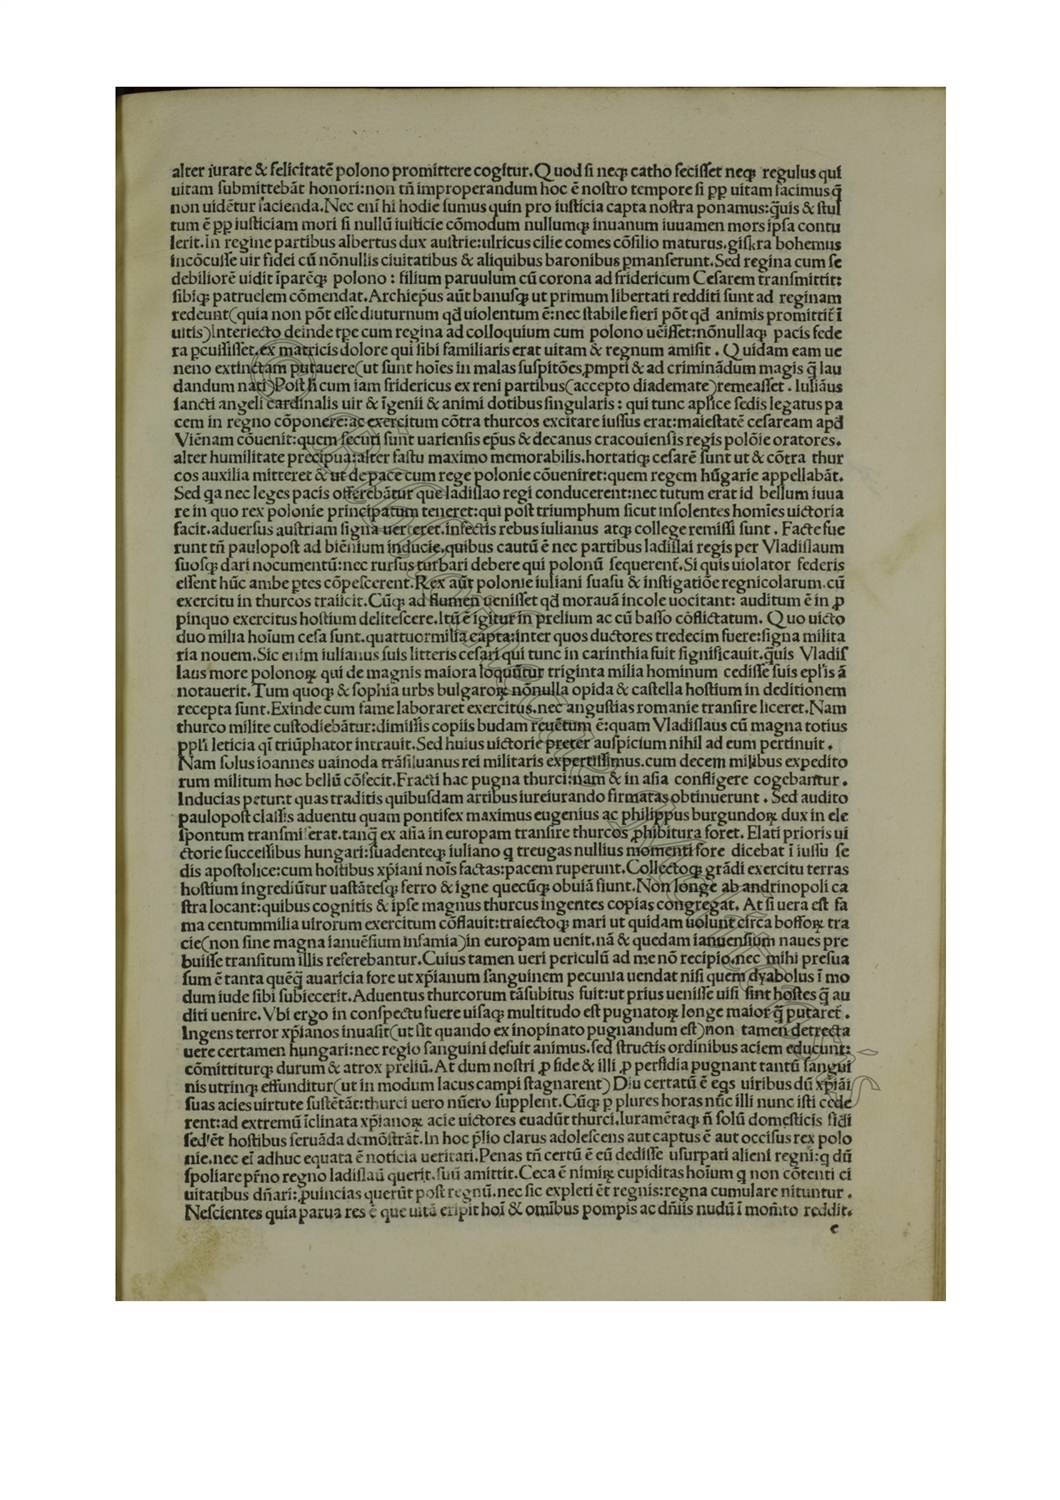 alter iurare & felicitatē polono promittere cogitur. Quod si neqꝫ catho fecisset neqꝫ regulus qui
uitam submittebāt honori: non tn̄ improperandum hoc ē nostro tempore si ꝓꝑ uitam facimus q̄
non uidētur facienda. Nec eni hi hodie sumus quin pro iusticia capta nostra ponamus: q̄uis & stul
tum ē ꝓꝑ iusticiam mori si nullū iusticie cōmodum nullumqꝫ inuanum iuuamen mors ipsa contu
lerit. In regine partibus albertus dux austrie: ulricus cilie comes cōsilio maturus. giskra bohemus
incōcusse uir fidei cū nōnullis ciuitatibus & aliquibus baronibus ꝑmanserunt. Sed regina cum se
debiliorē uidit īparēqꝫ polono : filium paruulum cū corona ad fridericum Cesarem transmittit:
sibiqꝫ patruelem cōmendat. Archiep̄us aūt banusqꝫ ut primum libertati redditi sunt ad reginam
redeunt(quia non pōt esse diuturnum qđ uiolentum ē: nec stabile fieri pōt qđ animis promittit̄ ī
uitis)Interiecto deinde tꝑe cum regina ad colloquium cum polono uēisset: nōnullaqꝫ pacis fede
ra ꝑcuisisset. ex matricis dolore qui sibi familiaris erat uitam & regnum amisit . Quidam eam ue
neno extinctam putauere(ut sunt hoīes in malas suspitōes ꝓmpti & ad criminādum magis q̄ lau
dandum nati)Post h̄ cum iam fridericus ex reni partibus(accepto diademate)remeasset . Iuliāus
sancti angeli cardinalis uir & īgenii & animi dotibus singularis : qui tunc aplīce sedis legatus pa
cem in regno cōponere: ac exercitum cōtra thurcos excitare iussus erat: maiestatē cesaream apđ
Viēnam cōuenit: quem secuti sunt uariensis ep̄us & decanus cracouiensis regis polōie oratores.
alter humilitate precipua: alter fastu maximo memorabilis. hortatiqꝫ cesarē sunt ut & cōtra thur
cos auxilia mitteret & ut de pace cum rege polonie cōueniret: quem regem hūgarie appellabāt.
Sed ꝗa nec leges pacis offerebātur que ladislao regi conducerent: nec tutum erat id bellum iuua
re in quo rex polonie principatum teneret: qui post triumphum sicut insolentes homīes uictoria
facit. aduersus austriam signa uerteret. infectis rebus iulianus atqꝫ college remissi sunt . Facte fue
runt tn̄ paulopost ad biēnium inducie. quibus cautū ē nec partibus ladislai regis per Vladislaum
suosqꝫ dari nocumentū: nec rursus turbari debere qui polonū sequerent̄. Si quis uiolator federis
essent hūc ambe ꝑtes cōpescerent. Rex aūt polonie iuliani suasu & instigatiōe regnicolarum. cū
exercitu in thurcos traiicit. Cūqꝫ ad flumen uenisset qđ morauā incole uocitant: auditum ē in ꝓ
pinquo exercitus hostium delitescere. Itū ē igitur in prelium ac cū basso cōflictatum. Quo uicto
duo milia hoīum cesa sunt. quattuormilia capta: inter quos ductores tredecim fuere: signa milita
ria nouem. Sic enim iulianus suis litteris cesari qui tunc in carinthia fuit significauit. q̄uis Vladis
laus more polonoꝝ qui de magnis maiora loquūtur triginta milia hominum cedisse suis ep̄lis ā
notauerit. Tum quoqꝫ & sophia urbs bulgaroꝝ nōnulla opida & castella hostium in deditionem
recepta sunt. Exinde cum fame laboraret exercitus. nec angustias romanie transire liceret. Nam
thurco milite custodiebātur: dimissis copiis budam reuētum ē: quam Vladislaus cū magna totius
ppl'i leticia qī triūphator intrauit. Sed huius uictorie preter auspicium nihil ad eum pertinuit .
Nam solus ioannes uainoda trāsiluanus rei militaris expertissimus. cum decem milibus expedito
rum militum hoc bellū cōfecit. Fracti hac pugna thurci: nam & in asia confligere cogebantur.
Inducias petunt quas traditis quibusdam artibus iureiurando firmatas obtinuerunt . Sed audito
paulopost classis aduentu quam pontifex maximus eugenius ac philippus burgundoꝝ dux in ele
spontum transmiserat. tanq̄ ex asia in europam transire thurcos ꝓhibitura foret. Elati prioris ui
ctorie successibus hungari: suadenteqꝫ iuliano ꝗ treugas nullius momenti fore dicebat ī iussu se
dis apostolice: cum hostibus xp̄iani noīs factas: pacem ruperunt. Collectoqꝫ grādi exercitu terras
hostium ingrediūtur uastātesqꝫ ferro & igne quecūqꝫ obuiā fiunt. Non longe ab andrinopoli ca
stra locant: quibus cognitis & ipse magnus thurcus ingentes copias congregat. At si uera est fa
ma centummilia uirorum exercitum cōflauit: traiectoqꝫ mari ut quidam uolunt circa bosforꝝ tra
cie(non sine magna ianuēsium infamia)in europam uenit. nā & quedam ianuensium naues pre
buisse transitum illis referebantur. Cuius tamen ueri periculū ad me nō recipio. nec mihi persua
sum ē tanta quēq̄ auaricia fore ut xp̄ianum sanguinem pecunia uendat nisi quem dyabolus ī mo
dum iude sibi subiecerit. Aduentus thurcorum tā subitus fuit: ut prius uenisse uisi sint hostes q̄ au
diti uenire. Vbi ergo in conspectu fuere uisaqꝫ multitudo est pugnatoꝝ longe maior q̄ putaret̄ .
Ingens terror xp̄ianos inuasit(ut fit quando ex inopinato pugnandum est)non tamen detrecta
uere certamen hungari: nec regio sanguini defuit animus. sed structis ordinibus aciem educunt:
cōmittiturqꝫ durum & atrox preliū. At dum nostri ꝓ fide & illi ꝓ perfidia pugnant tantū sangui
nis utrinqꝫ effunditur(ut in modum lacus campi stagnarent) Diu certatū ē eꝗs uiribus dū xp̄iāi
suas acies uirtute sustētāt: thurci uero nūero supplent. Cūqꝫ ꝑ plures horas nūc illi nunc isti cede
rent: ad extremū īclinata xp̄ianoꝝ acie uictores euadūt thurci. Iuramētaqꝫ n̄ solū domesticis fidi
sed'ēt hostibus seruāda demōstrāt. In hoc p̄lio clarus adolescens aut captus ē aut occisus rex polo
nie. nec eī adhuc equata ē noticia ueritati. Penas tn̄ certū ē eū dedisse usurpati alieni regni: ꝗ dū
spoliare pr̄no regno ladislaū querit. suū amittit. Ceca ē nimiꝝ cupiditas hoīum ꝗ non cōtenti ci
uitatibus dn̄ari: ꝓuincias querūt post regnū. nec sic expleti ēt regnis: regna cumulare nituntur .
Nescientes quia parua res ē que uitā eripit hoī & omībus pompis ac dn̄iis nudū ī mom̄to reddit.
c